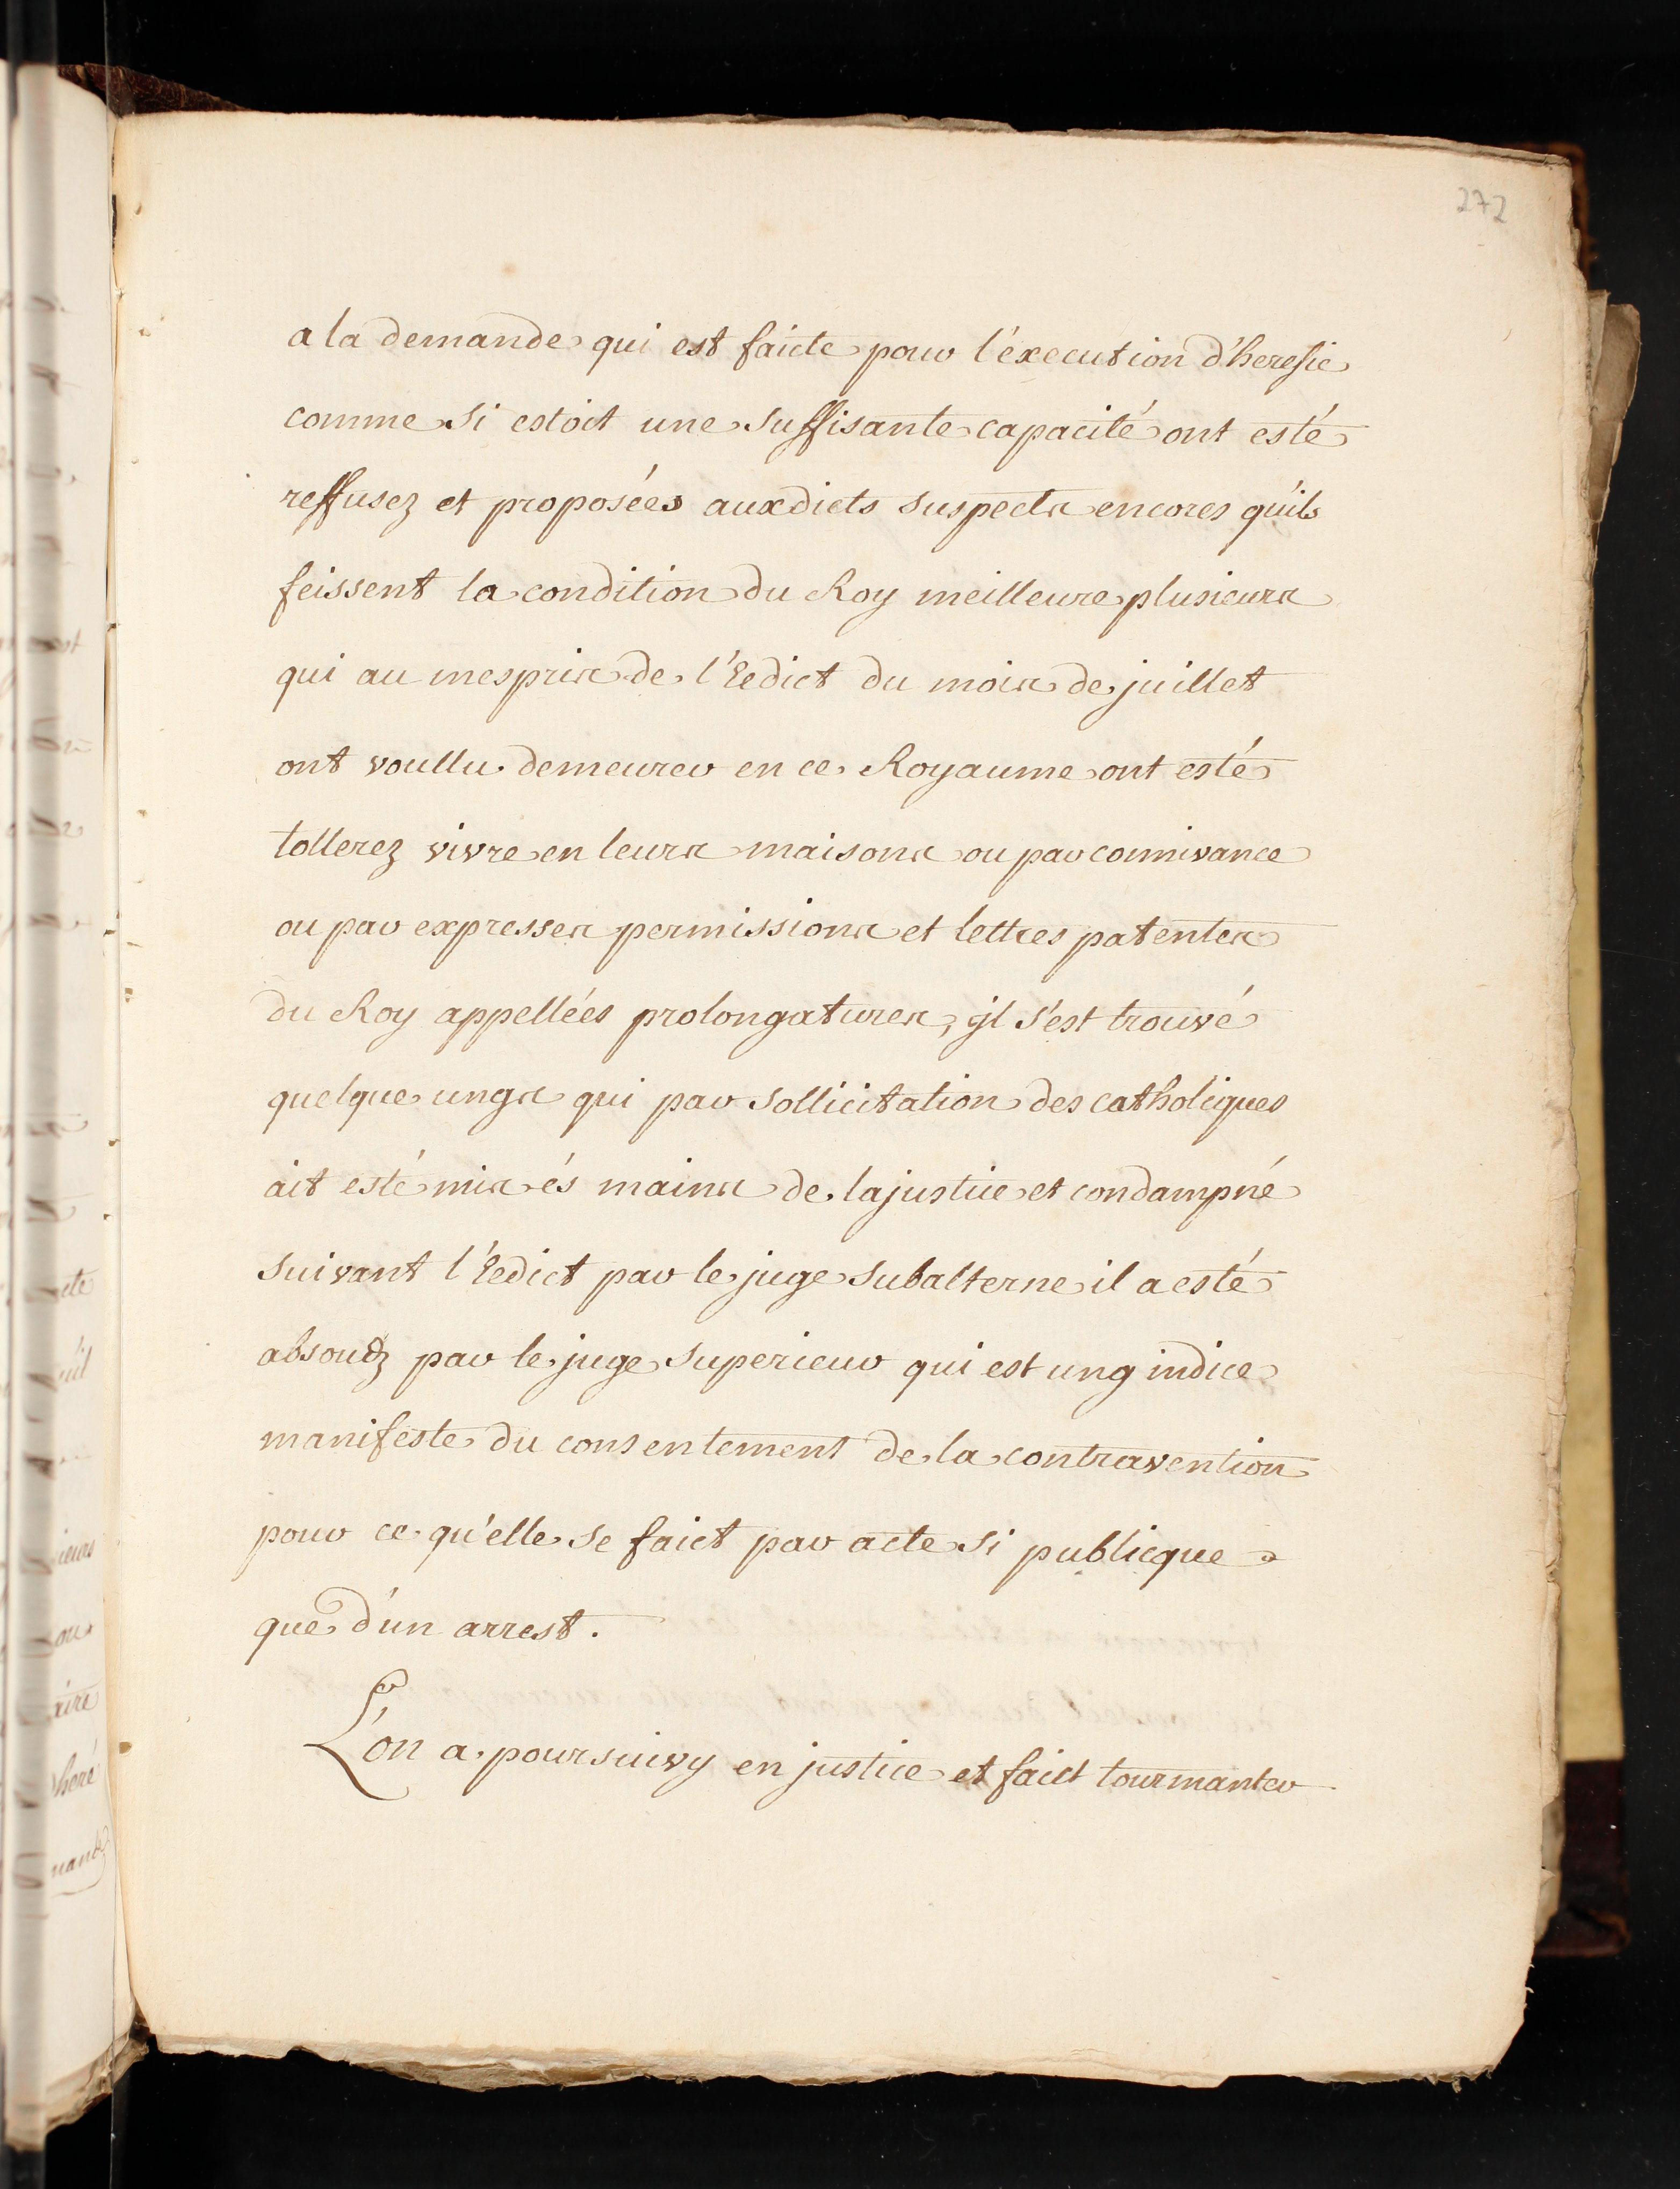 272
a la demande qui est faicte pour l'éxecution d'heresie
comme si estoit une suffisante capacité ont esté
reffusez et proposées auxdicts suspects encores quils
feissent la condition du Roy meilleure plusieurs
qui au mespris de l'Eedict du mois de juillet
ont voullu demeurer en ce Royaume ont esté
tollerez vivre en leurs maisons ou par connivance
ou par expresses permissions et lettres patentes
du Roy appellées prolongatures, jl s'est trouvé
quelque ungs qui par sollicitation des catholiques
ait esté mis és mains de la justice et condampné
suivant l'Eedict par le juge subalterne il a esté
absoudz par le juge superieur qui est ung indice
manifeste du consentement de la contravention
pour ce qu'elle se faict par acte si publicque
que d'un arrest.
L'on a poursuivy en justice et faict tourmanter